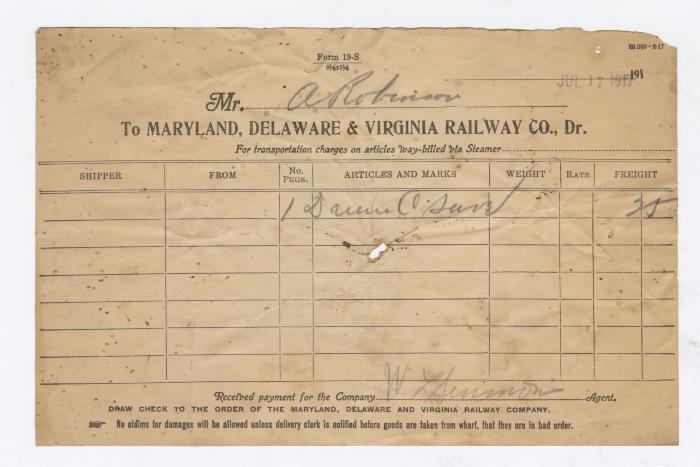 Form 19-S
80,000-2-17
JUL 17 1917 191
Mr. A Robinson
To MARYLAND, DELAWARE & VIRGINIA RAILWAY CO., Dr.
For transportation charges on articles way-billed via Steamer
SHIPPER FROM No. PKGS. ARTICLES AND MARKS WEIGHT RATE FREIGHT
1 25
Received payment for the Company W Agent.
DRAW CHECK TO THE ORDER OF THE MARYLAND, DELAWARE AND VIRGINIA RAILWAY COMPANY.
No claims for damages will be allowed unless delivery clerk is notified before goods are taken from wharf, that they are in bad order.